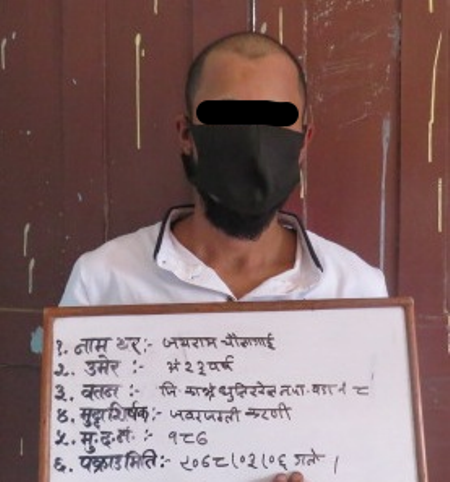 १. नाम थर :- जयराम चौलागाई
२. उमेर :- अं २३ वर्ष
३. वतन :- जि. काभ्रे धुलिखेल नपा. वडा नं ८
४. मुद्दा शिर्षक :- जवरजस्ती करणी
५. मु. द. नं. :- १८७
६. पक्राउ मिति :- २०७८/०२/०६ गते ।